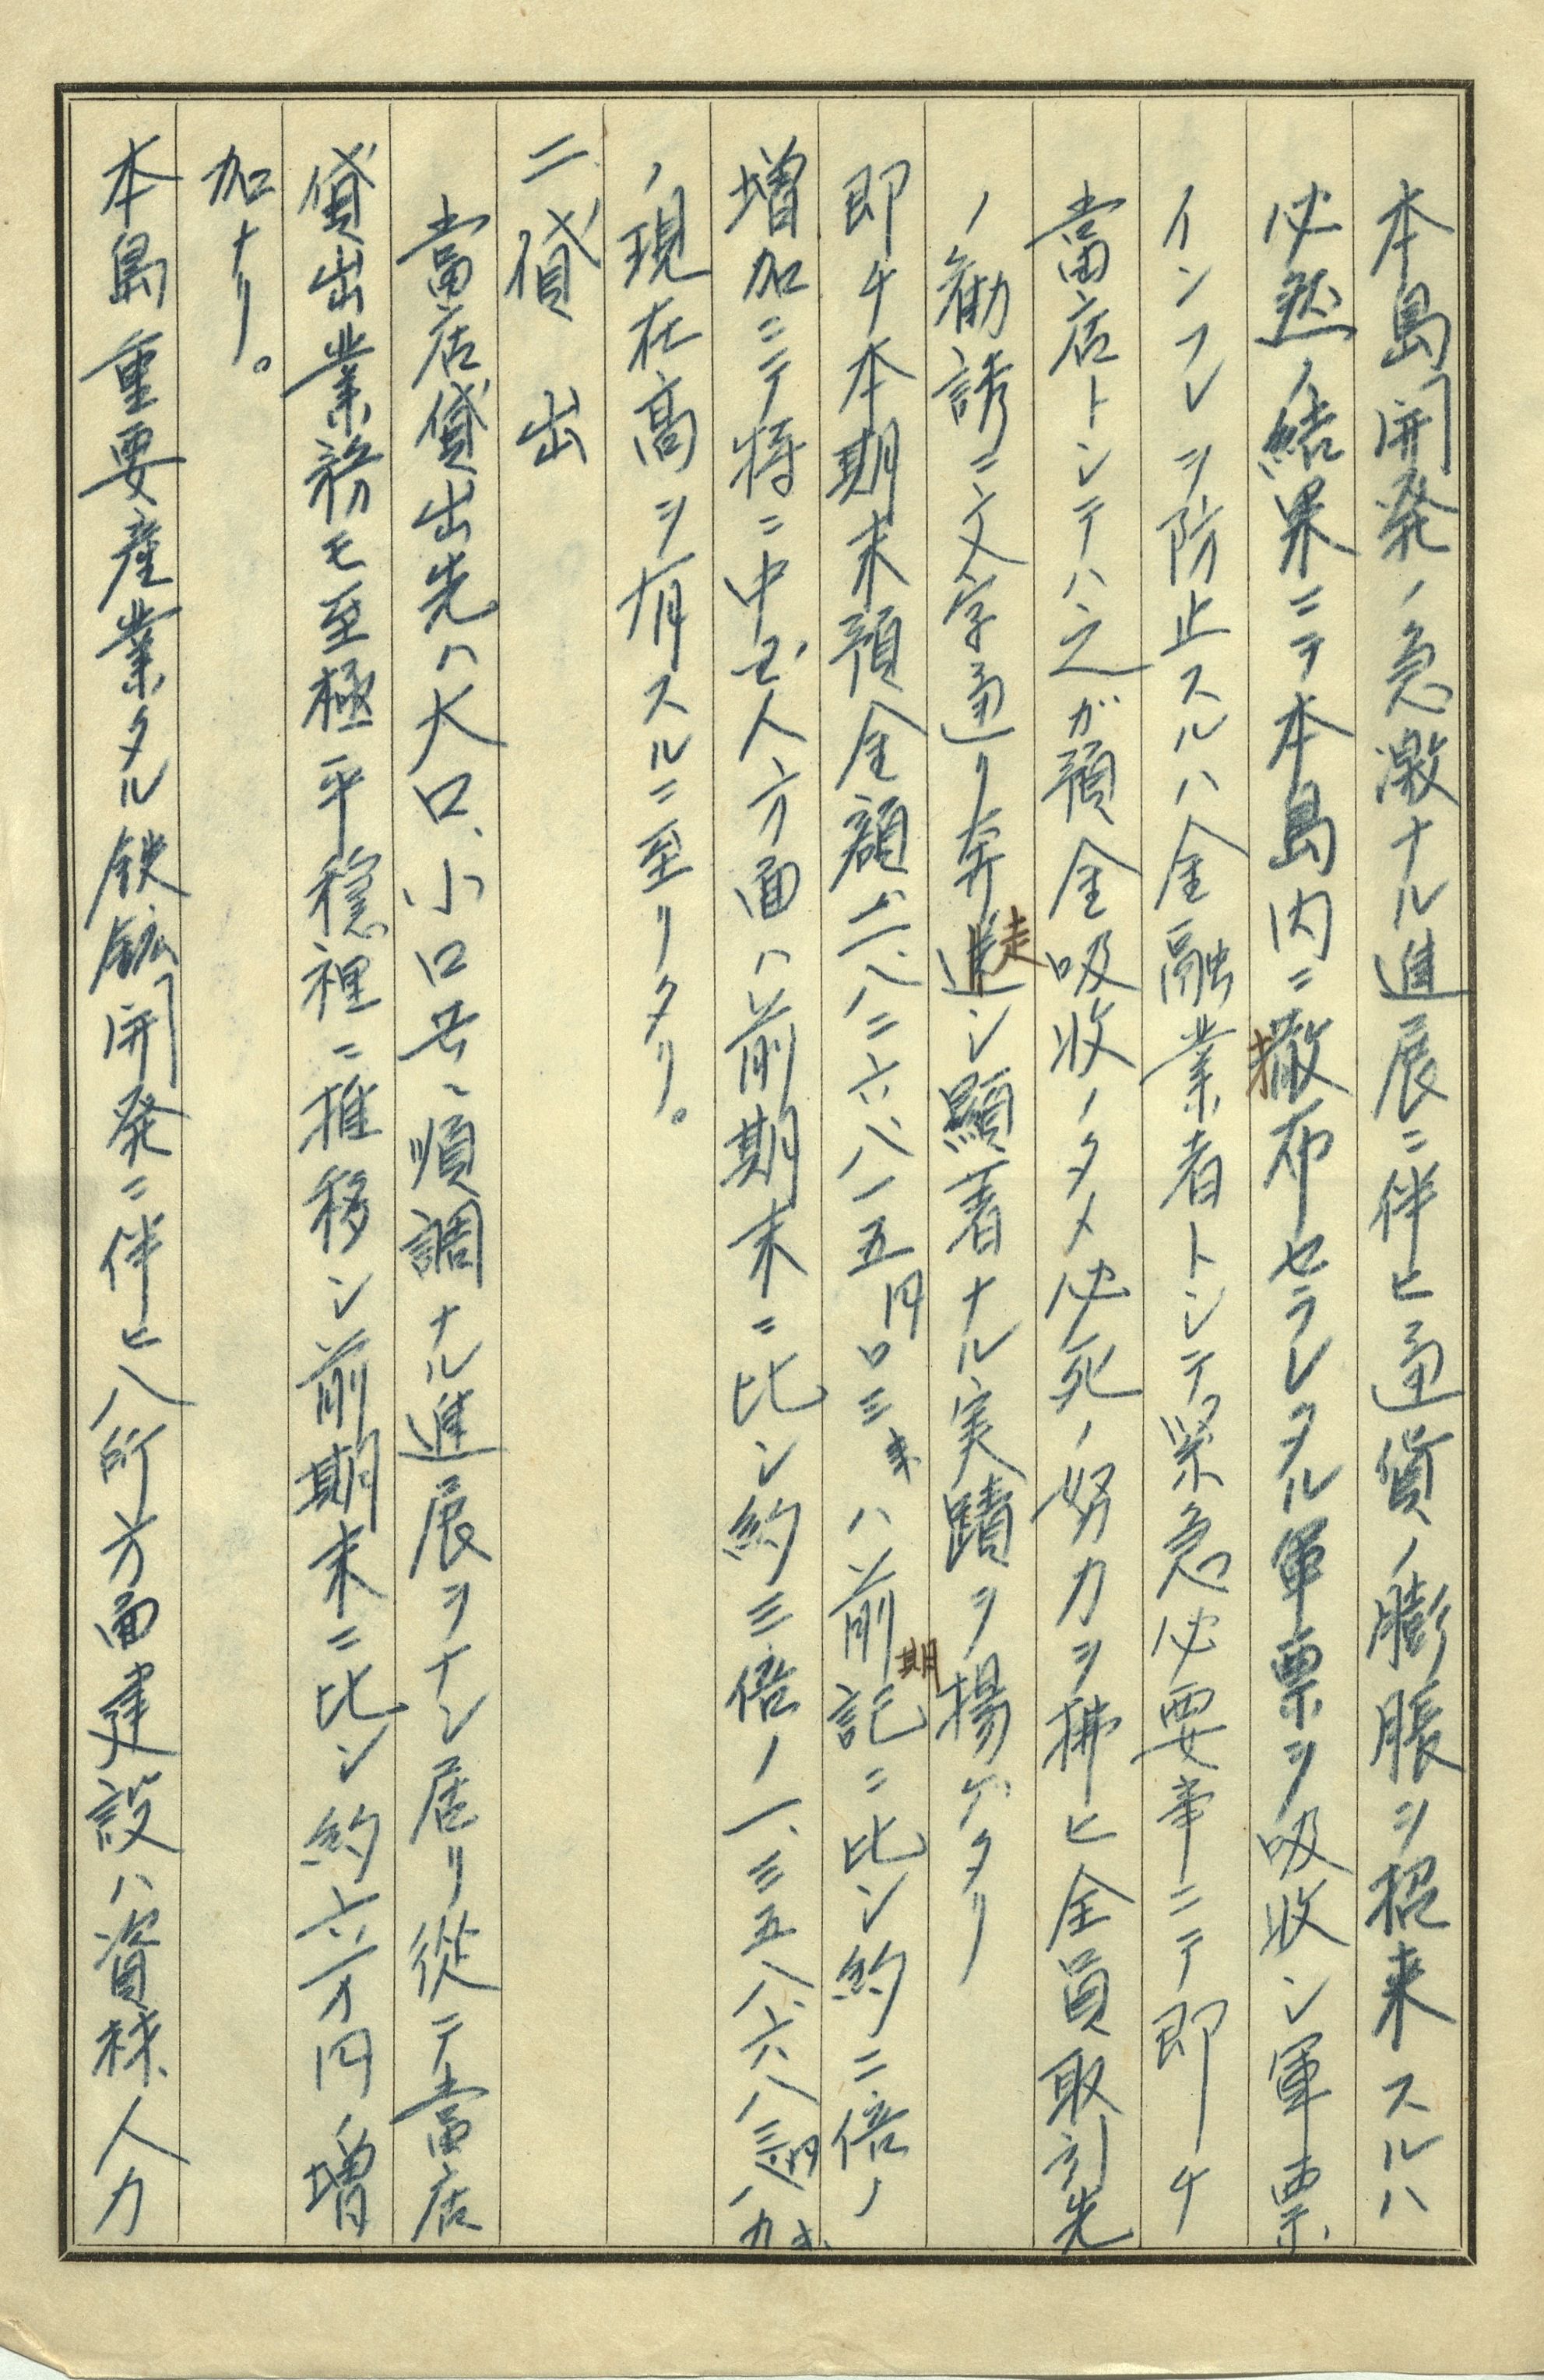 本島開発ノ急激ナル進展ニ伴ヒ通貨ノ膨脹ヲ招来スルハ
必然ノ結果ニテ本島内ニ撒布セラレタル軍票ヲ吸收シ軍票
インフレヲ防止スルハ金融業者トシテ緊急必要事ニテ即チ
當店トシテハ之ガ預金吸收ノタメ必死ノ努力ヲ拂ヒ全員取引先
ノ勧誘ニ文字通リ奔走シ顯著ナル実蹟ヲ揚ゲタリ
即チ本期末預金額 八二六、八一五円〇三銭ハ前期記ニ比シ約二倍ノ
増加ニテ特ニ中国人方面ハ前期末ニ比シ約三倍ノ一、三五八、六八
ノ現在高ヲ有スルニ至リタリ。
二貸出
當店貸出先ハ大口、小口共ニ順調ナル進展ヲナシ居リ從テ當店
貸出業務モ至極平穏裡ニ推移シ前期末ニ比シ約六万円ノ増
加ナリ。
本島重要産業タル鉄鉱開発ニ伴ヒ八所方面建設ハ資材、人力